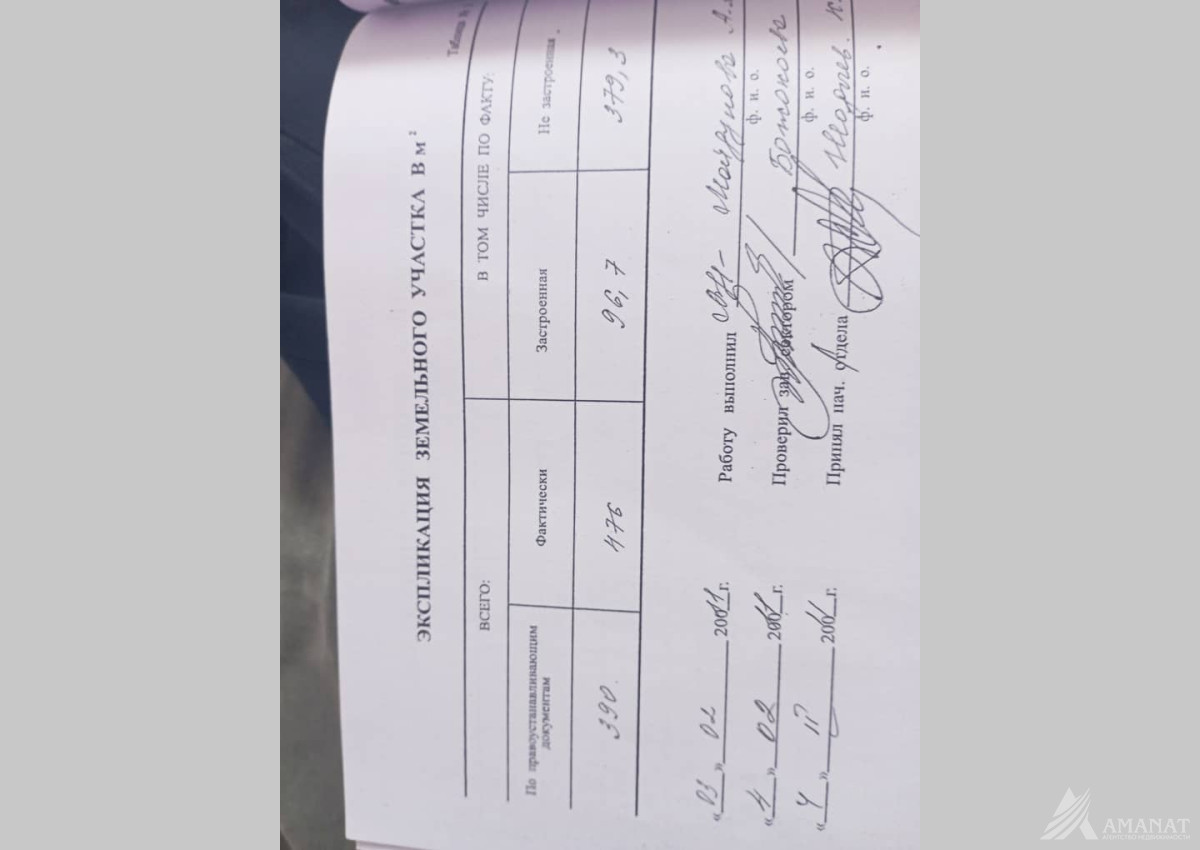 Таблица №
ЭКСПЛИКАЦИЯ ЗЕМЕЛЬНОГО УЧАСТКА В м²
ВСЕГО: В ТОМ ЧИСЛЕ ПО ФАКТУ:
По правоустанавливающим документам Фактически Застроенная Не застроенная
390. 476 96,7 379,3
« 03 » 02 2011 г. Работу выполнил
ф. и. о.
« 4 » 02 2011 г. Проверил зав. сектором
ф. и. о.
« 4 » II 2001 г. Принял нач. отдела
ф. и. о.
AMANAT
АГЕНТСТВО НЕДВИЖИМОСТИ